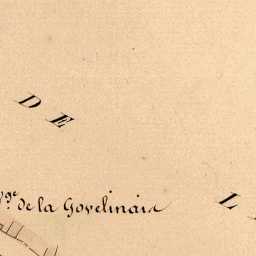 DE
V.ge de la Govelinais
L